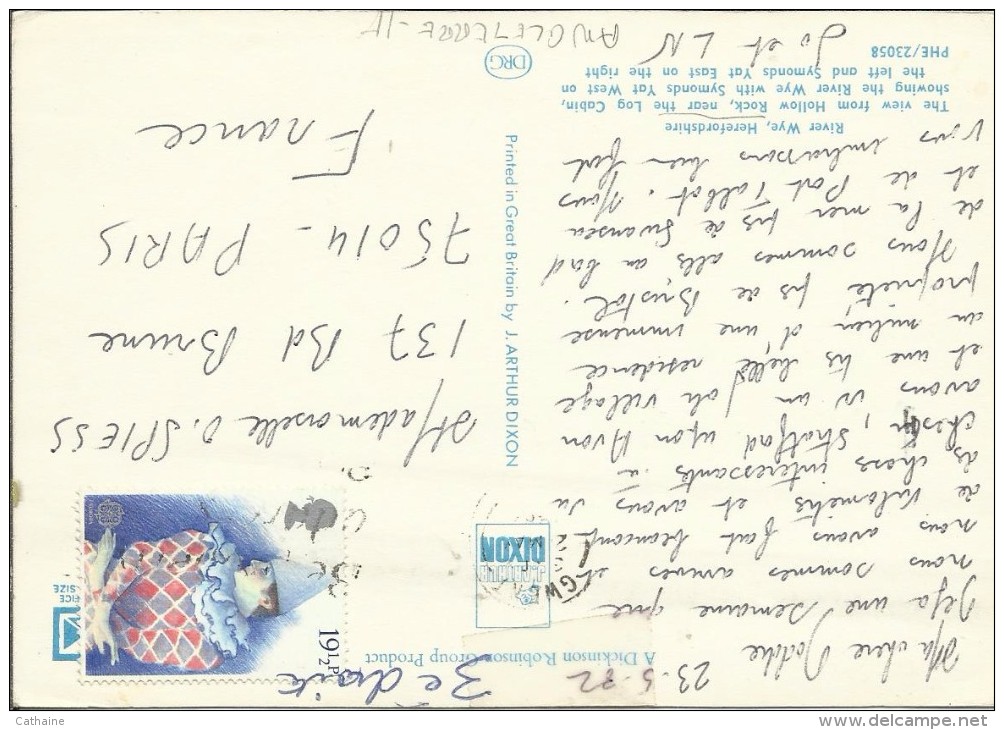 A Dickinson Robinson Group Product
23-5-82
Ma chère
Déjà une semaine que
nous sommes arrivés et
nous avons fait beaucoup
de kilomètres et avons vu
des choses interessants. à
, Stratford upon Avon
avons vu un joli village
et une très belle residence
au milieu d'une immense
propriété près de Bristol.
Nous sommes allés au bord
de la mer près de Swansea
et de Port Talbot. Nous
vous embrassons bien fort
Jo et LN
River Wye, Herefordshire
The view from Hollow Rock, near the Log Cabin,
showing the River Wye with Symonds Yat West on
the left and Symonds Yat East on the right
PHE/23058
DRG
ANGLETERRE-
ARTHUR
DIXON
Printed in Great Britain by J. ARTHUR DIXON
3è droite
19½P
Mademoiselle O. SPIESS
137 Bd Brune
75014 - PARIS
France
Cathaine
www.delcampe.net